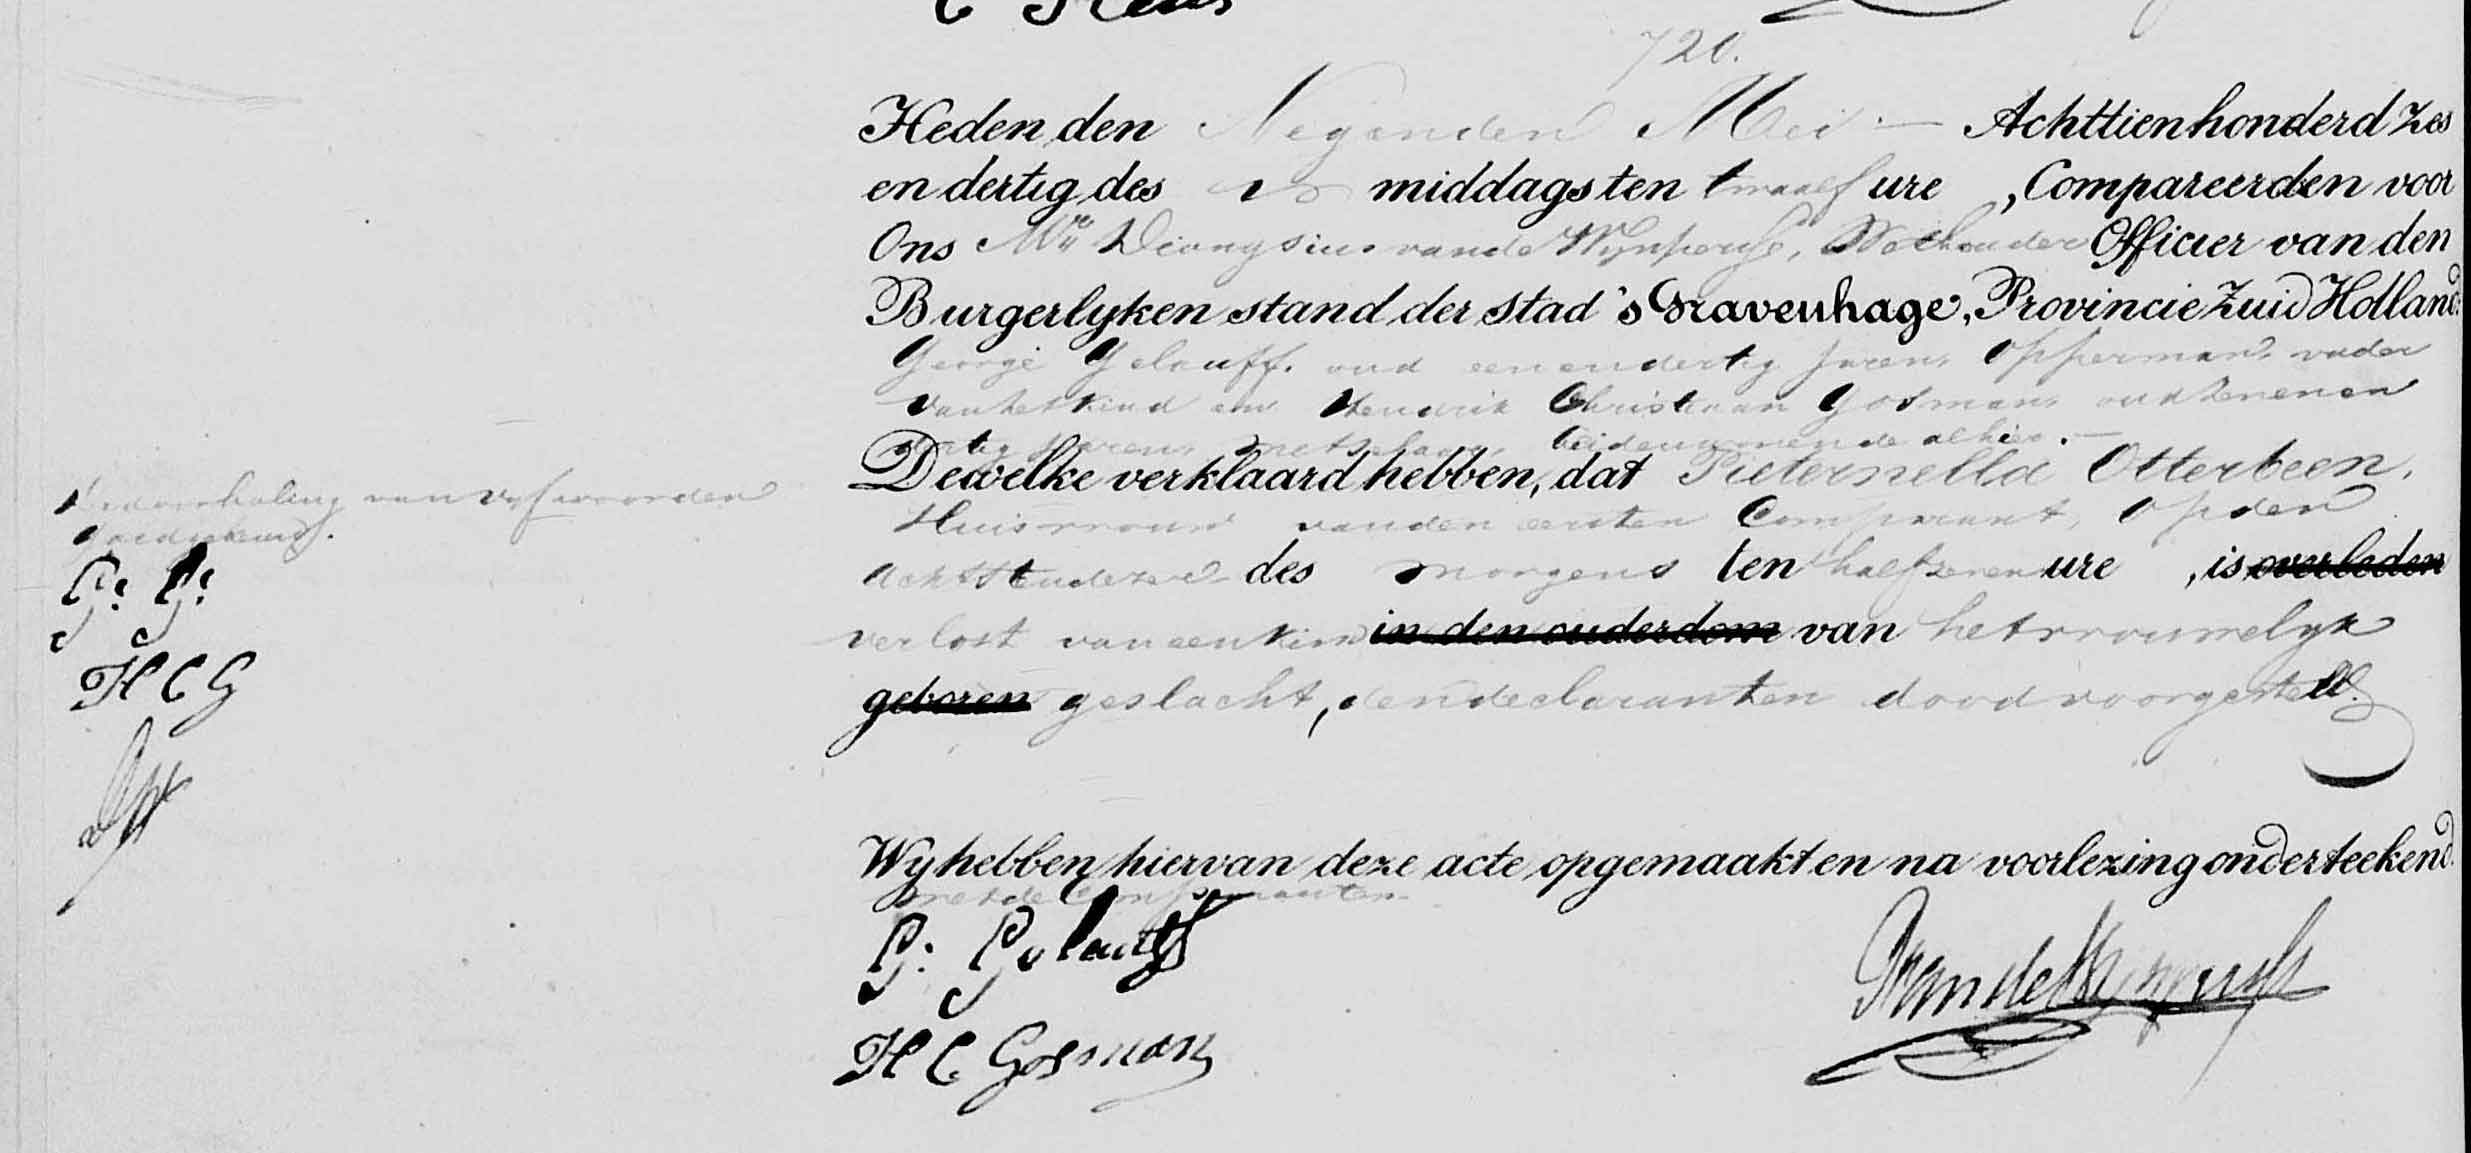 720.
Heden den Negenden Mei — Achttienhonderd Zes
en dertig des middags ten twaalf ure, Compareerden voor
Ons Mr Dionysius van de Wijnpersse, Wethouder Officier van den
Burgerlyken stand der stad 's Gravenhage, Provincie Zuid Holland.
George Gelauff. oud eenendertig Jaren, Opperman, vader
van het kind en Hendrik Christiaan Gosman, oud zevenen
dertig Jaren, metselaar, beiden wonende alhier. —
Dewelke verklaard hebben, dat Pieternella Otterbeen,
Huisvrouw van den eersten Comparant, op den
achtsten dezer des morgens ten half zeven ure, is overleden
verlost van een kind in den ouderdom van het vrouwelyk
geboren geslacht, den declaranten dood voorgesteld.
Wy hebben hiervan deze acte opgemaakt en na voorlezing onderteekend.
met de Comparanten
G: Gelauff
H C Gosman
van de Wynpersse
van vyf woorden
goedgekeurd.
G: G:
H C G